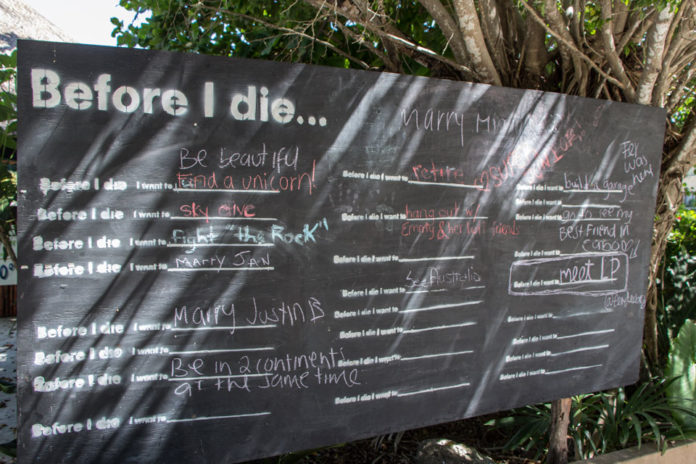 Before I die...
Be beautiful
Before I die I want to find a unicorn!
Before I die I want to sky dive
Before I die I want to Fight "the Rock"
Before I die I want to Marry JAN
Before I die I want to Marry Justin B
Before I die I want to
Before I die I want to Be in 2 continents
at the same time
Before I die I want to
Marry
Before I die I want to return
Before I die I want to
Before I die I want to hang out w/
Emmy & her full friends
Before I die I want to
See Australia
Before I die I want to
Before I die I want to
Before I die I want to
Before I die I want to
Before I die I want to
Fry
was
here
Before I die I want to build a garage
Before I die I want to
Before I die I want to go see my
Best Friend in
Before I die I want to
Before I die I want to meet LP
Before I die I want to
Before I die I want to
Before I die I want to